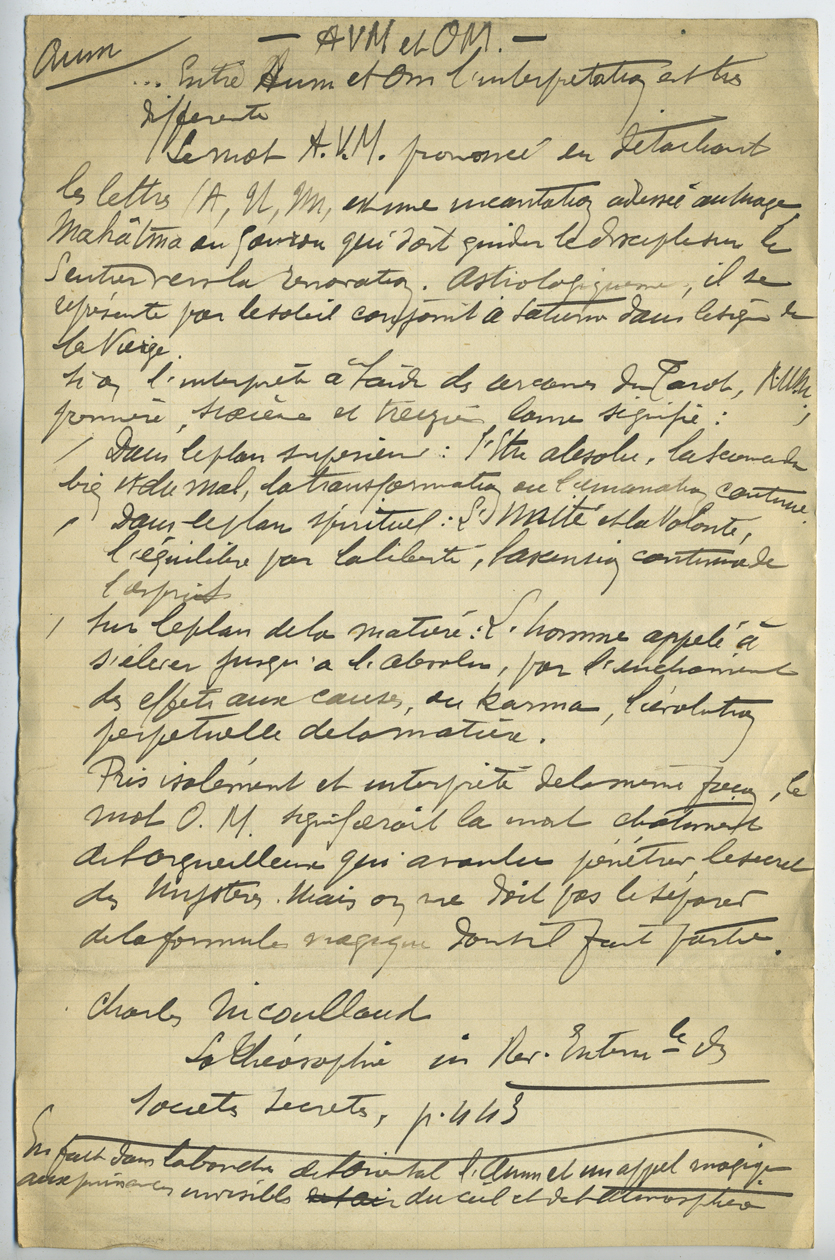 Aum
— AVM et OM. —
... Entre Aum et Om l'interprétation est très
différente
Le mot A.V.M. prononcé en détachant
les lettres (A, U, M, est une incantation adressée au mage,
Mahâtma ou Gourou qui doit guider le disciple sur le
Sentier vers la rénovation. Astrologiquement, il se
représente par le soleil conjoint à Saturne dans le signe de
la Vierge.
Si on l'interprète à l'aide des arcanes du Tarot, A.U.M.,
première, sixième et treizième lame signifie :
/ Dans le plan supérieur : l'Être absolu, la science du
bien et du mal, la transformation ou l'émanation continue.
/ Dans le plan spirituel : L'Unité et la Volonté,
l'équilibre par la liberté, l'ascension continue de
l'esprit
/ Sur le plan de la matière : L'homme appelé à
s'élever jusqu'à l'absolu, par l'enchainement
des effets aux causes, ou Karma, l'évolution
perpetuelle de la matière.
Pris isolément et interprété de la même façon, le
mot O. M. signifierait la mort chatiment
de l'orgueilleux qui a voulu pénétrer le secret
des Mystères. Mais on ne doit pas le séparer
de la formule magique dont il fait partie.
Charles Nicoullaud
La Théosophie in Rev. Intern^le des
Societes Secretes, p. 443
En fait dans la bouche de l'oriental l'Aum est un appel magique
aux puissances invisibles du ciel et de l'atmosphère